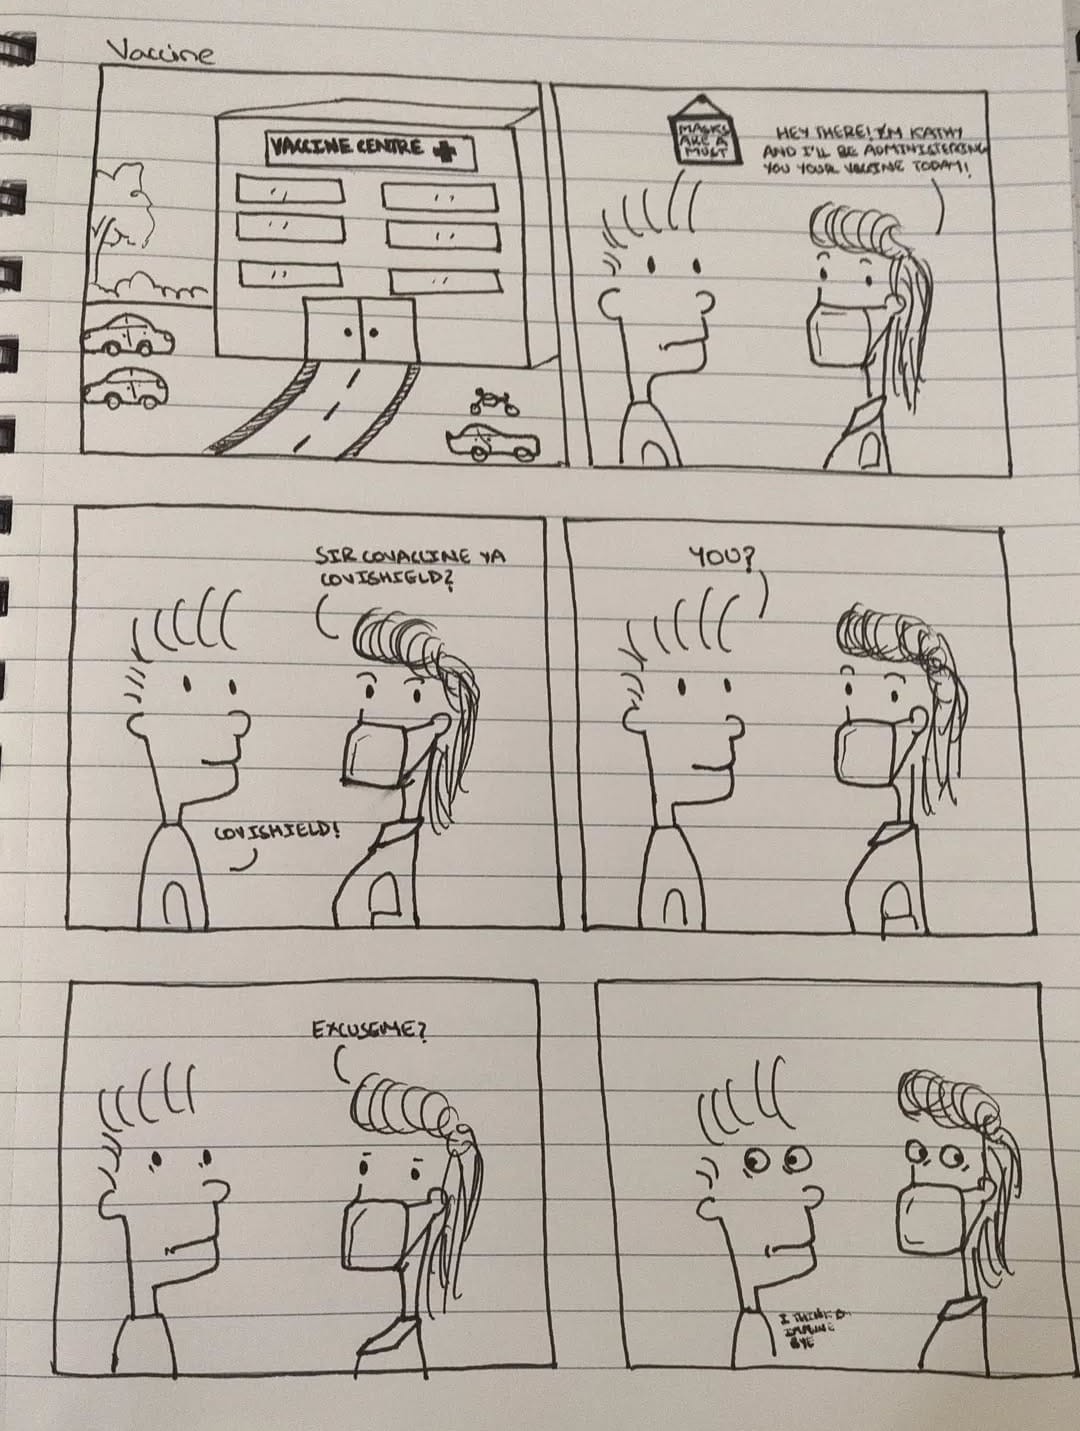 Vaccine
VACCINE CENTRE
MASKS
ARE A
MUST
HEY THERE! I'M KATHY
AND I'LL BE ADMINISTERING
YOU YOUR VACCINE TODAY!
SIR COVACCINE YA
COVISHIELD?
COVISHIELD!
YOU?
EXCUSEME?
I THINK
IMMUNE
BYE